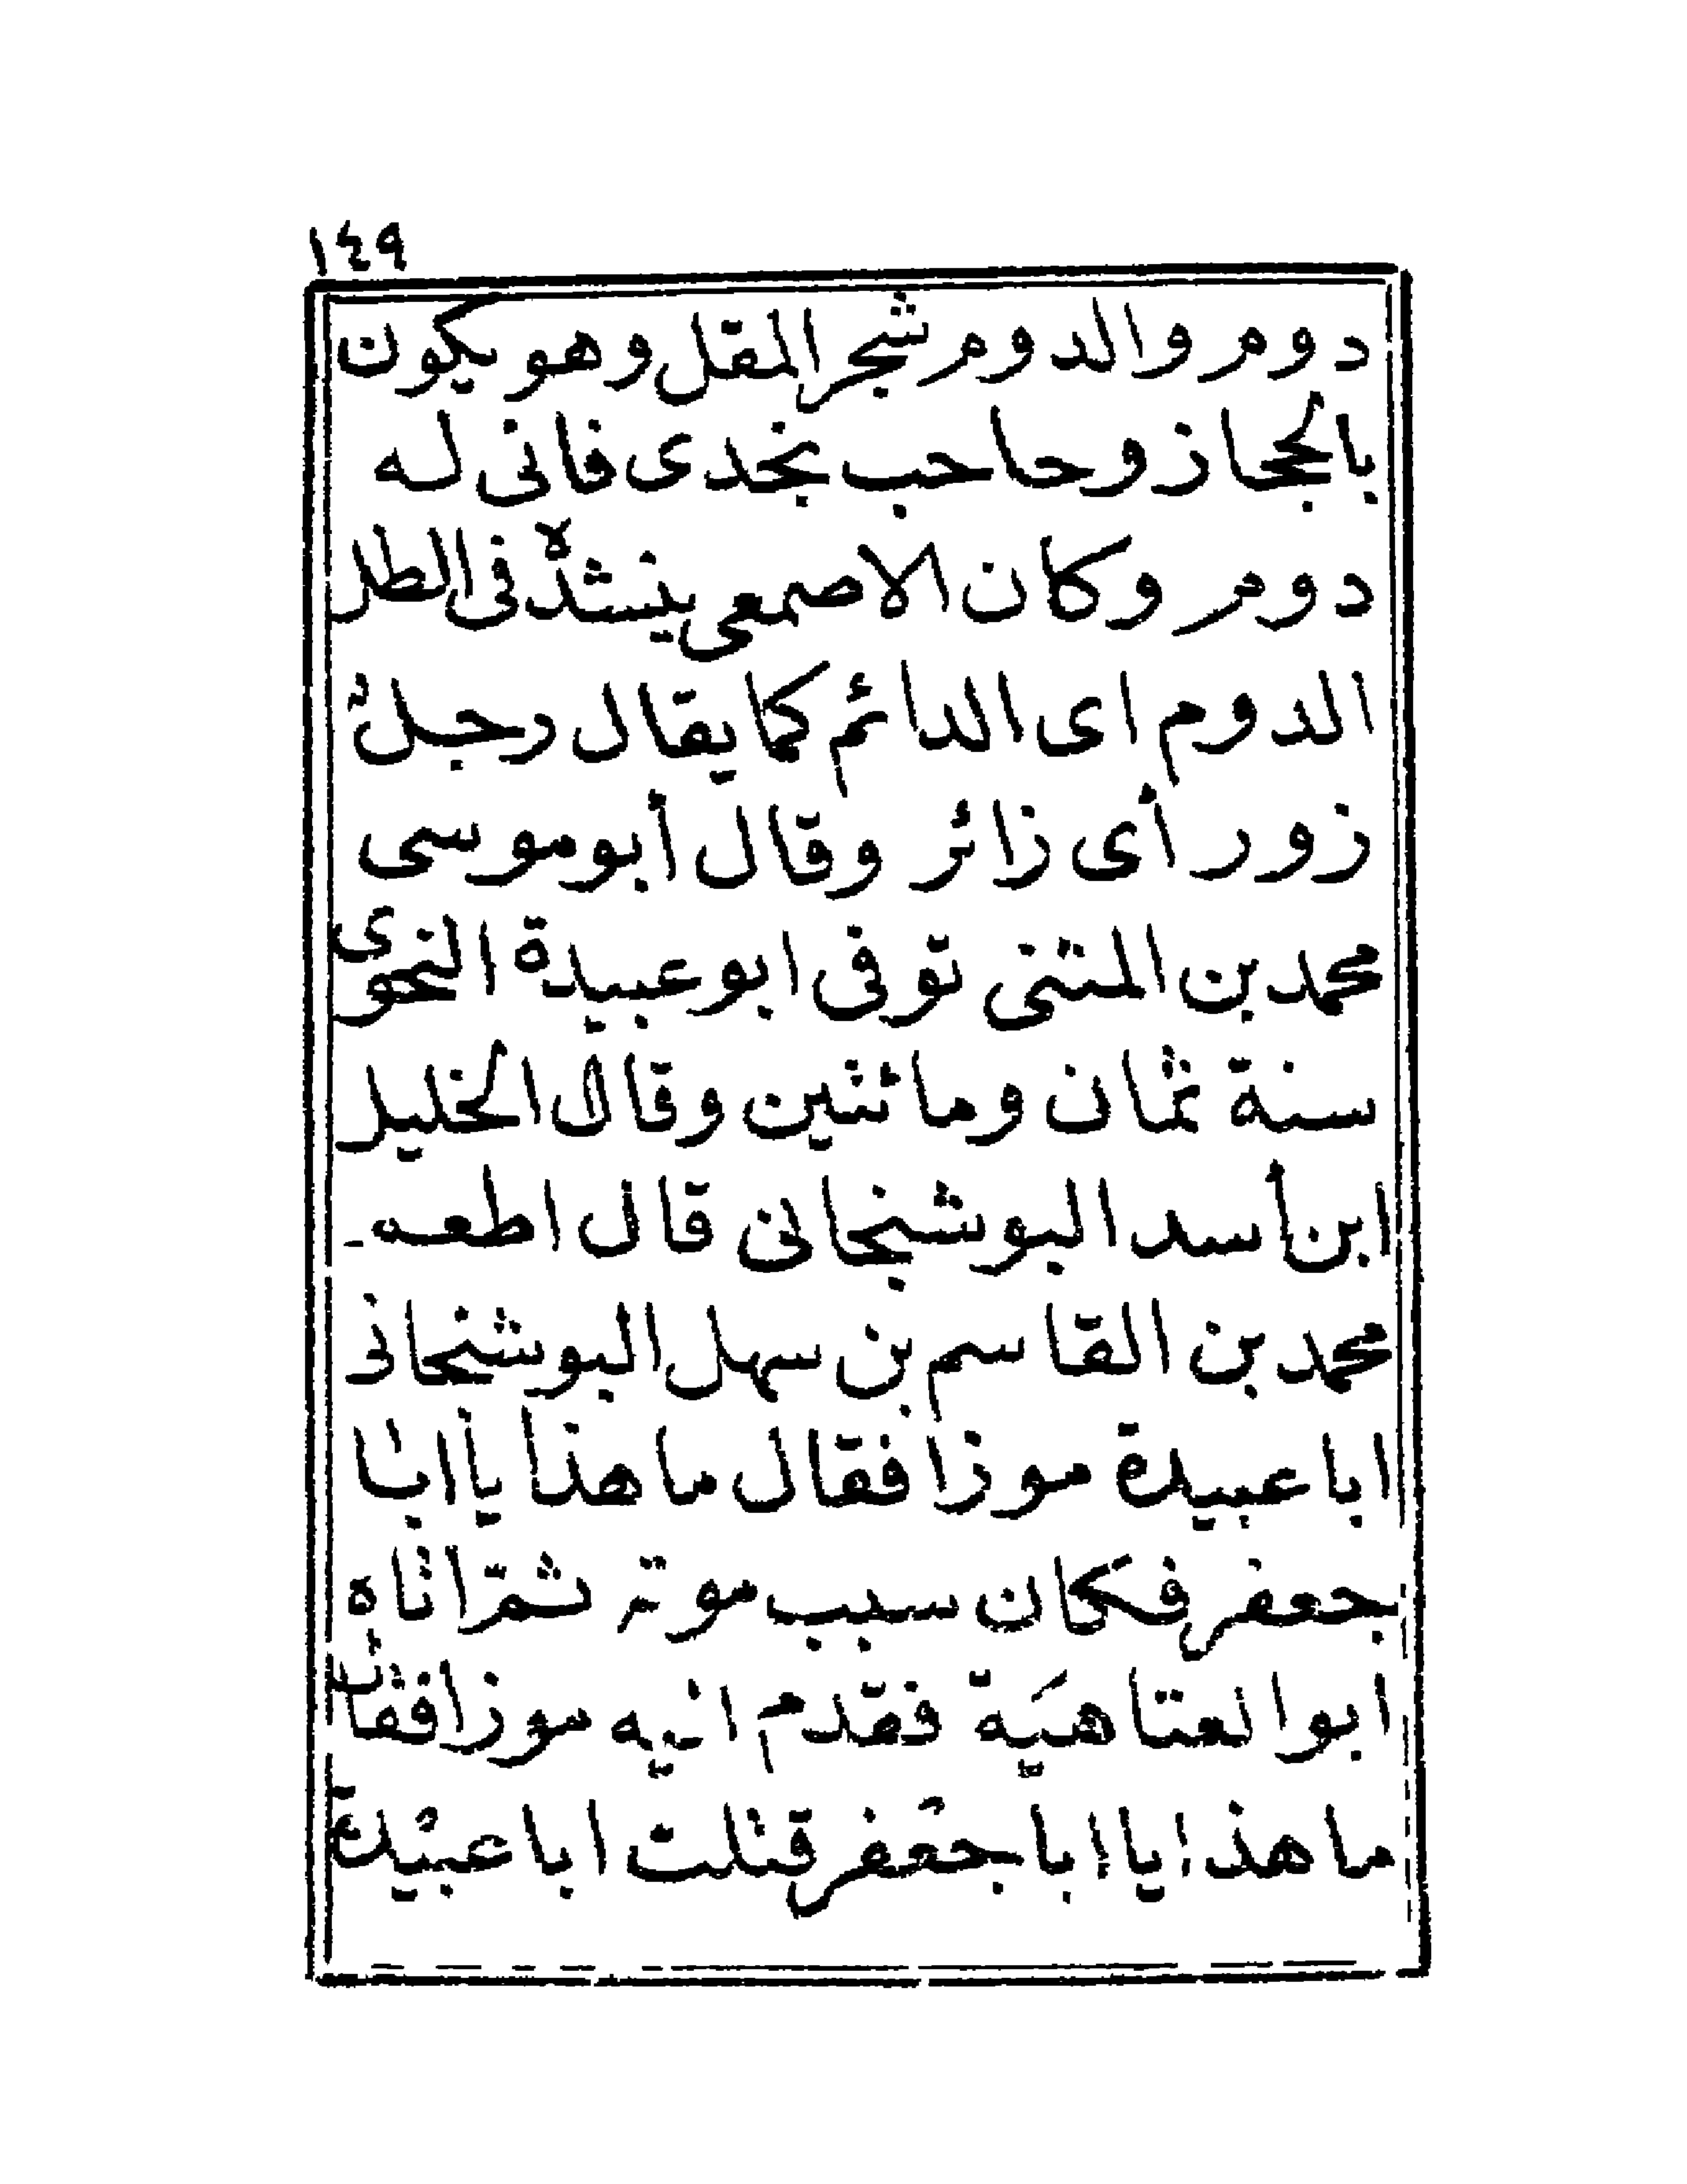 ١٤٩
دوم والدوم شجر المقل وهو يكون
بالحجاز وحاحب نجدى فانى له
دوم وكان الاصمعى ينشده فى الطل
الدوم اى الدائم كما يقال رجل
زور أى زائر وقال أبو موسى
محمد بن المثنى توفى ابو عبيدة النحوى
سنة ثمان ومائتين وقال الخليل
ابن أسد البوشنجانى قال اطعه
محمد بن القاسم بن سهل البوشنجانى
ابا عبيدة موزا فقال ما هذا يا ابا
جعفر فكان سبب موته ثم اتاه
ابو العتاهية فقدم اليه موزا فقال
ما هذا يا ابا جعفر قتلت ابا عبيدة